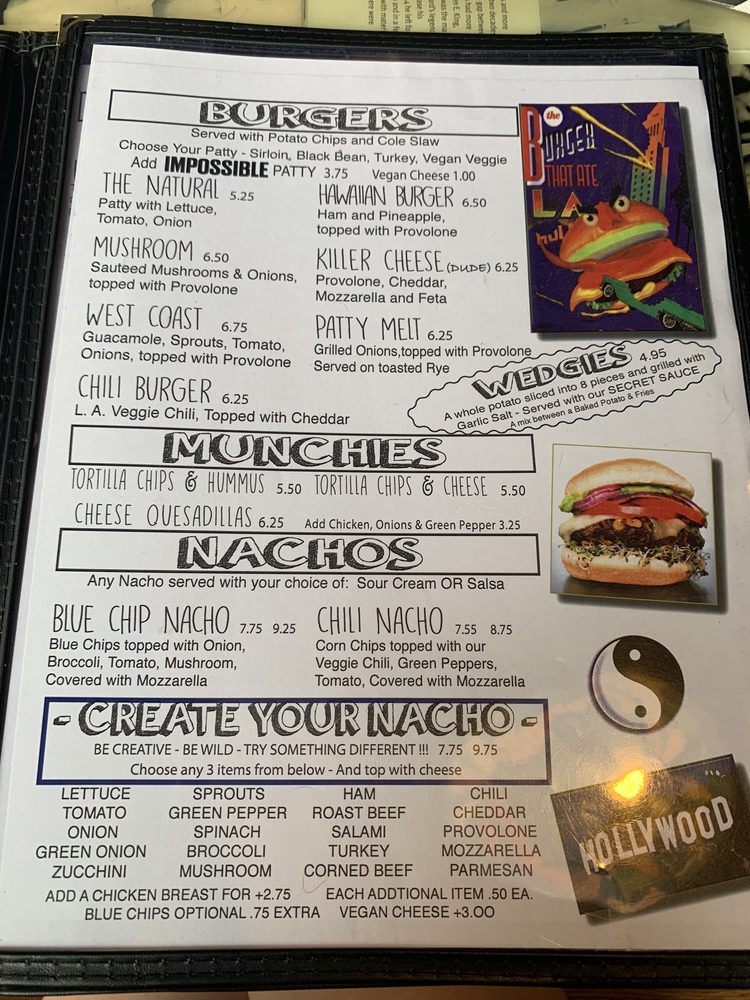 BURGERS
Served with Potato Chips and Cole Slaw
Choose Your Patty - Sirloin, Black Bean, Turkey, Vegan Veggie
Add IMPOSSIBLE PATTY 3.75 Vegan Cheese 1.00
THE NATURAL 5.25
Patty with Lettuce,
Tomato, Onion
HAWAIIAN BURGER 6.50
Ham and Pineapple,
topped with Provolone
MUSHROOM 6.50
Sauteed Mushrooms & Onions,
topped with Provolone
KILLER CHEESE (DUDE) 6.25
Provolone, Cheddar,
Mozzarella and Feta
WEST COAST 6.75
Guacamole, Sprouts, Tomato,
Onions, topped with Provolone
PATTY MELT 6.25
Grilled Onions,topped with Provolone
Served on toasted Rye
CHILI BURGER 6.25
L. A. Veggie Chili, Topped with Cheddar
the
BURGER
THAT ATE
L.A.
WEDGIES 4.95
A whole potato sliced into 8 pieces and grilled with
Garlic Salt - Served with our SECRET SAUCE
A mix between a Baked Potato & Fries
MUNCHIES
TORTILLA CHIPS & HUMMUS 5.50 TORTILLA CHIPS & CHEESE 5.50
CHEESE QUESADILLAS 6.25 Add Chicken, Onions & Green Pepper 3.25
NACHOS
Any Nacho served with your choice of: Sour Cream OR Salsa
BLUE CHIP NACHO 7.75 9.25
Blue Chips topped with Onion,
Broccoli, Tomato, Mushroom,
Covered with Mozzarella
CHILI NACHO 7.55 8.75
Corn Chips topped with our
Veggie Chili, Green Peppers,
Tomato, Covered with Mozzarella
- CREATE YOUR NACHO -
BE CREATIVE - BE WILD - TRY SOMETHING DIFFERENT !!! 7.75 9.75
Choose any 3 items from below - And top with cheese
LETTUCE SPROUTS HAM CHILI
TOMATO GREEN PEPPER ROAST BEEF CHEDDAR
ONION SPINACH SALAMI PROVOLONE
GREEN ONION BROCCOLI TURKEY MOZZARELLA
ZUCCHINI MUSHROOM CORNED BEEF PARMESAN
ADD A CHICKEN BREAST FOR +2.75 EACH ADDTIONAL ITEM .50 EA.
BLUE CHIPS OPTIONAL .75 EXTRA VEGAN CHEESE +3.00
HOLLYWOOD